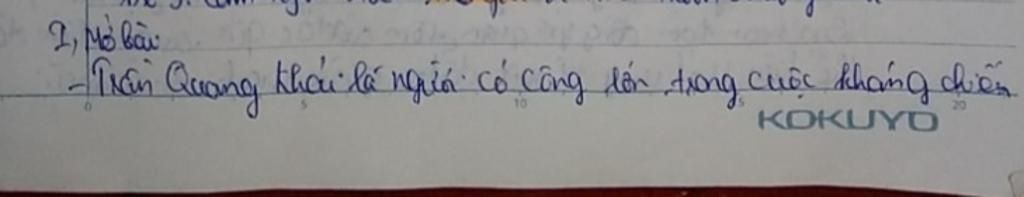 I, Mở bài
- Trần Quang Khải là người có công lớn trong cuộc kháng chiến
0 5 10 5 20
KOKUYO